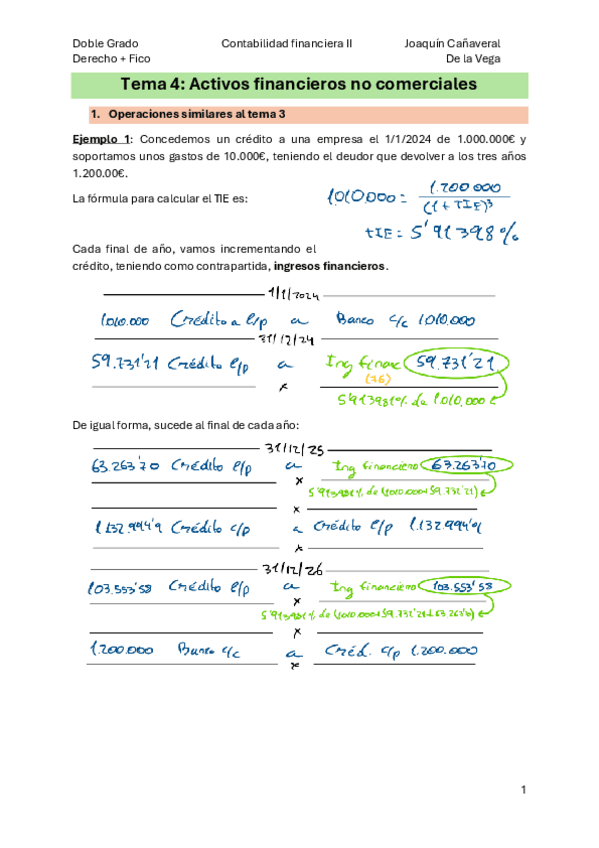 Doble Grado Contabilidad financiera II Joaquín Cañaveral
Derecho + Fico De la Vega
Tema 4: Activos financieros no comerciales
1. Operaciones similares al tema 3
Ejemplo 1: Concedemos un crédito a una empresa el 1/1/2024 de 1.000.000€ y
soportamos unos gastos de 10.000€, teniendo el deudor que devolver a los tres años
1.200.00€.
La fórmula para calcular el TIE es:
1010.000 = 1.200.000 / (1+TIE)³
TIE = 5'91398%
Cada final de año, vamos incrementando el
crédito, teniendo como contrapartida, ingresos financieros.
1/1/2024
1010.000 Crédito a l/p a Banco c/c 1010.000
31/12/24
59.731'21 Crédito l/p a Ing financ 59.731'21
x (76)
5'91398% de 1.010.000
De igual forma, sucede al final de cada año:
31/12/25
63.263'70 Crédito l/p a Ing financiero 63.263'70
x
5'91398% de (1010.000+59.731'21)
x
1.132.994'9 Crédito c/p a Crédito l/p 1.132.994'9
x
31/12/26
103.553'58 Crédito l/p a Ing financiero 103.553'58
x
5'91398% de (1010.000+59.731'21+63.263'70)
x
1.200.000 Banco c/c a Créd. c/p 1.200.000
x
1